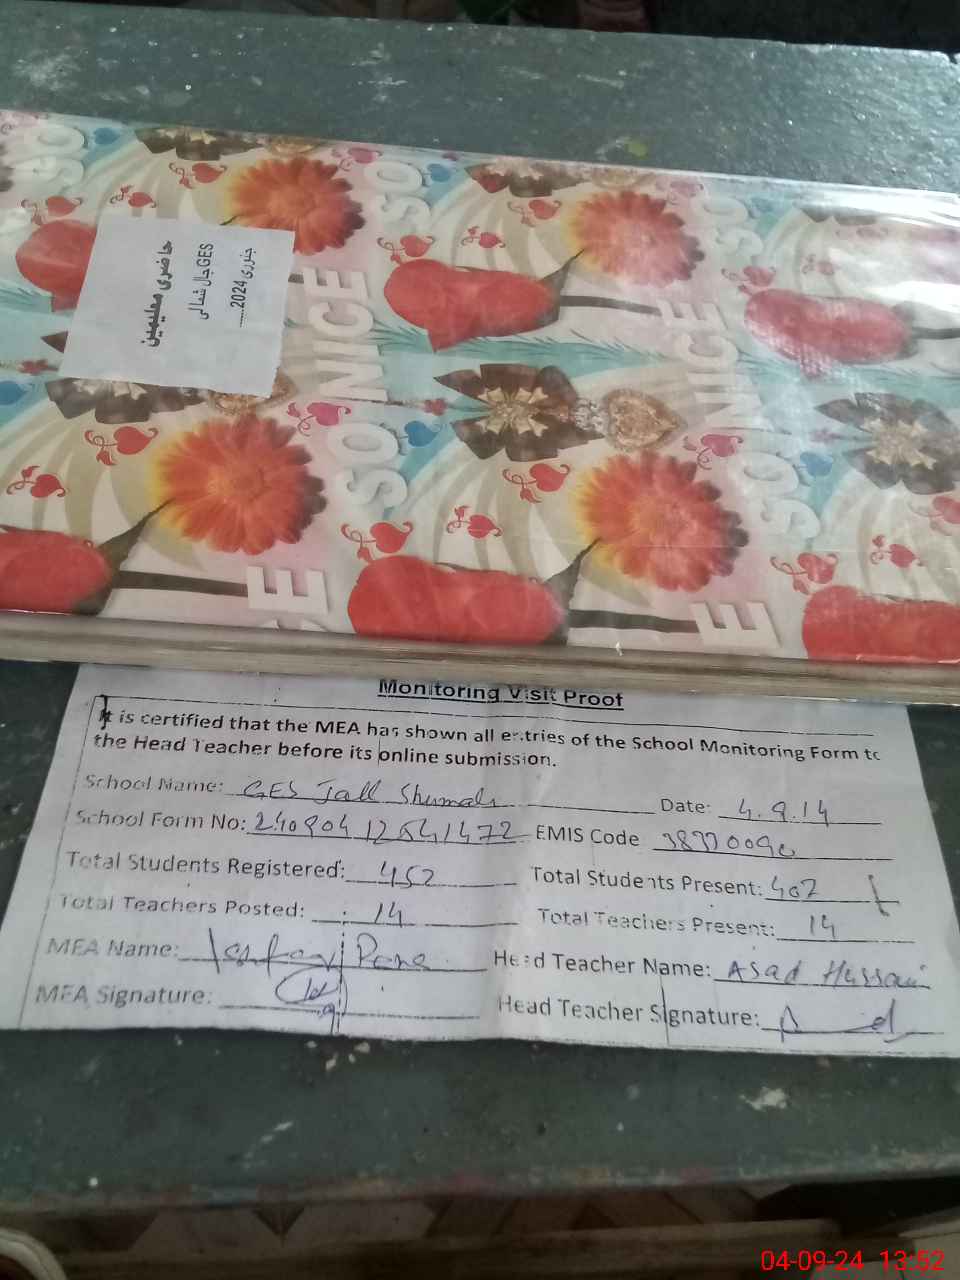 حاضری معلیمین
GES جال شمالی
جنوری 2024......
SO NICE SO NICE SO
SO NICE SO NICE
Monitoring Visit Proof
It is certified that the MEA has shown all entries of the School Monitoring Form to
the Head Teacher before its online submission.
School Name: GES Jall Shumali Date: 4.9.14
School Form No: EMIS Code
Total Students Registered: 452 Total Students Present: 402
Total Teachers Posted: 14 Total Teachers Present: 14
MEA Name: Rana Head Teacher Name: Asad Hussain
MEA Signature: Head Teacher Signature:
04-09-24 13:52